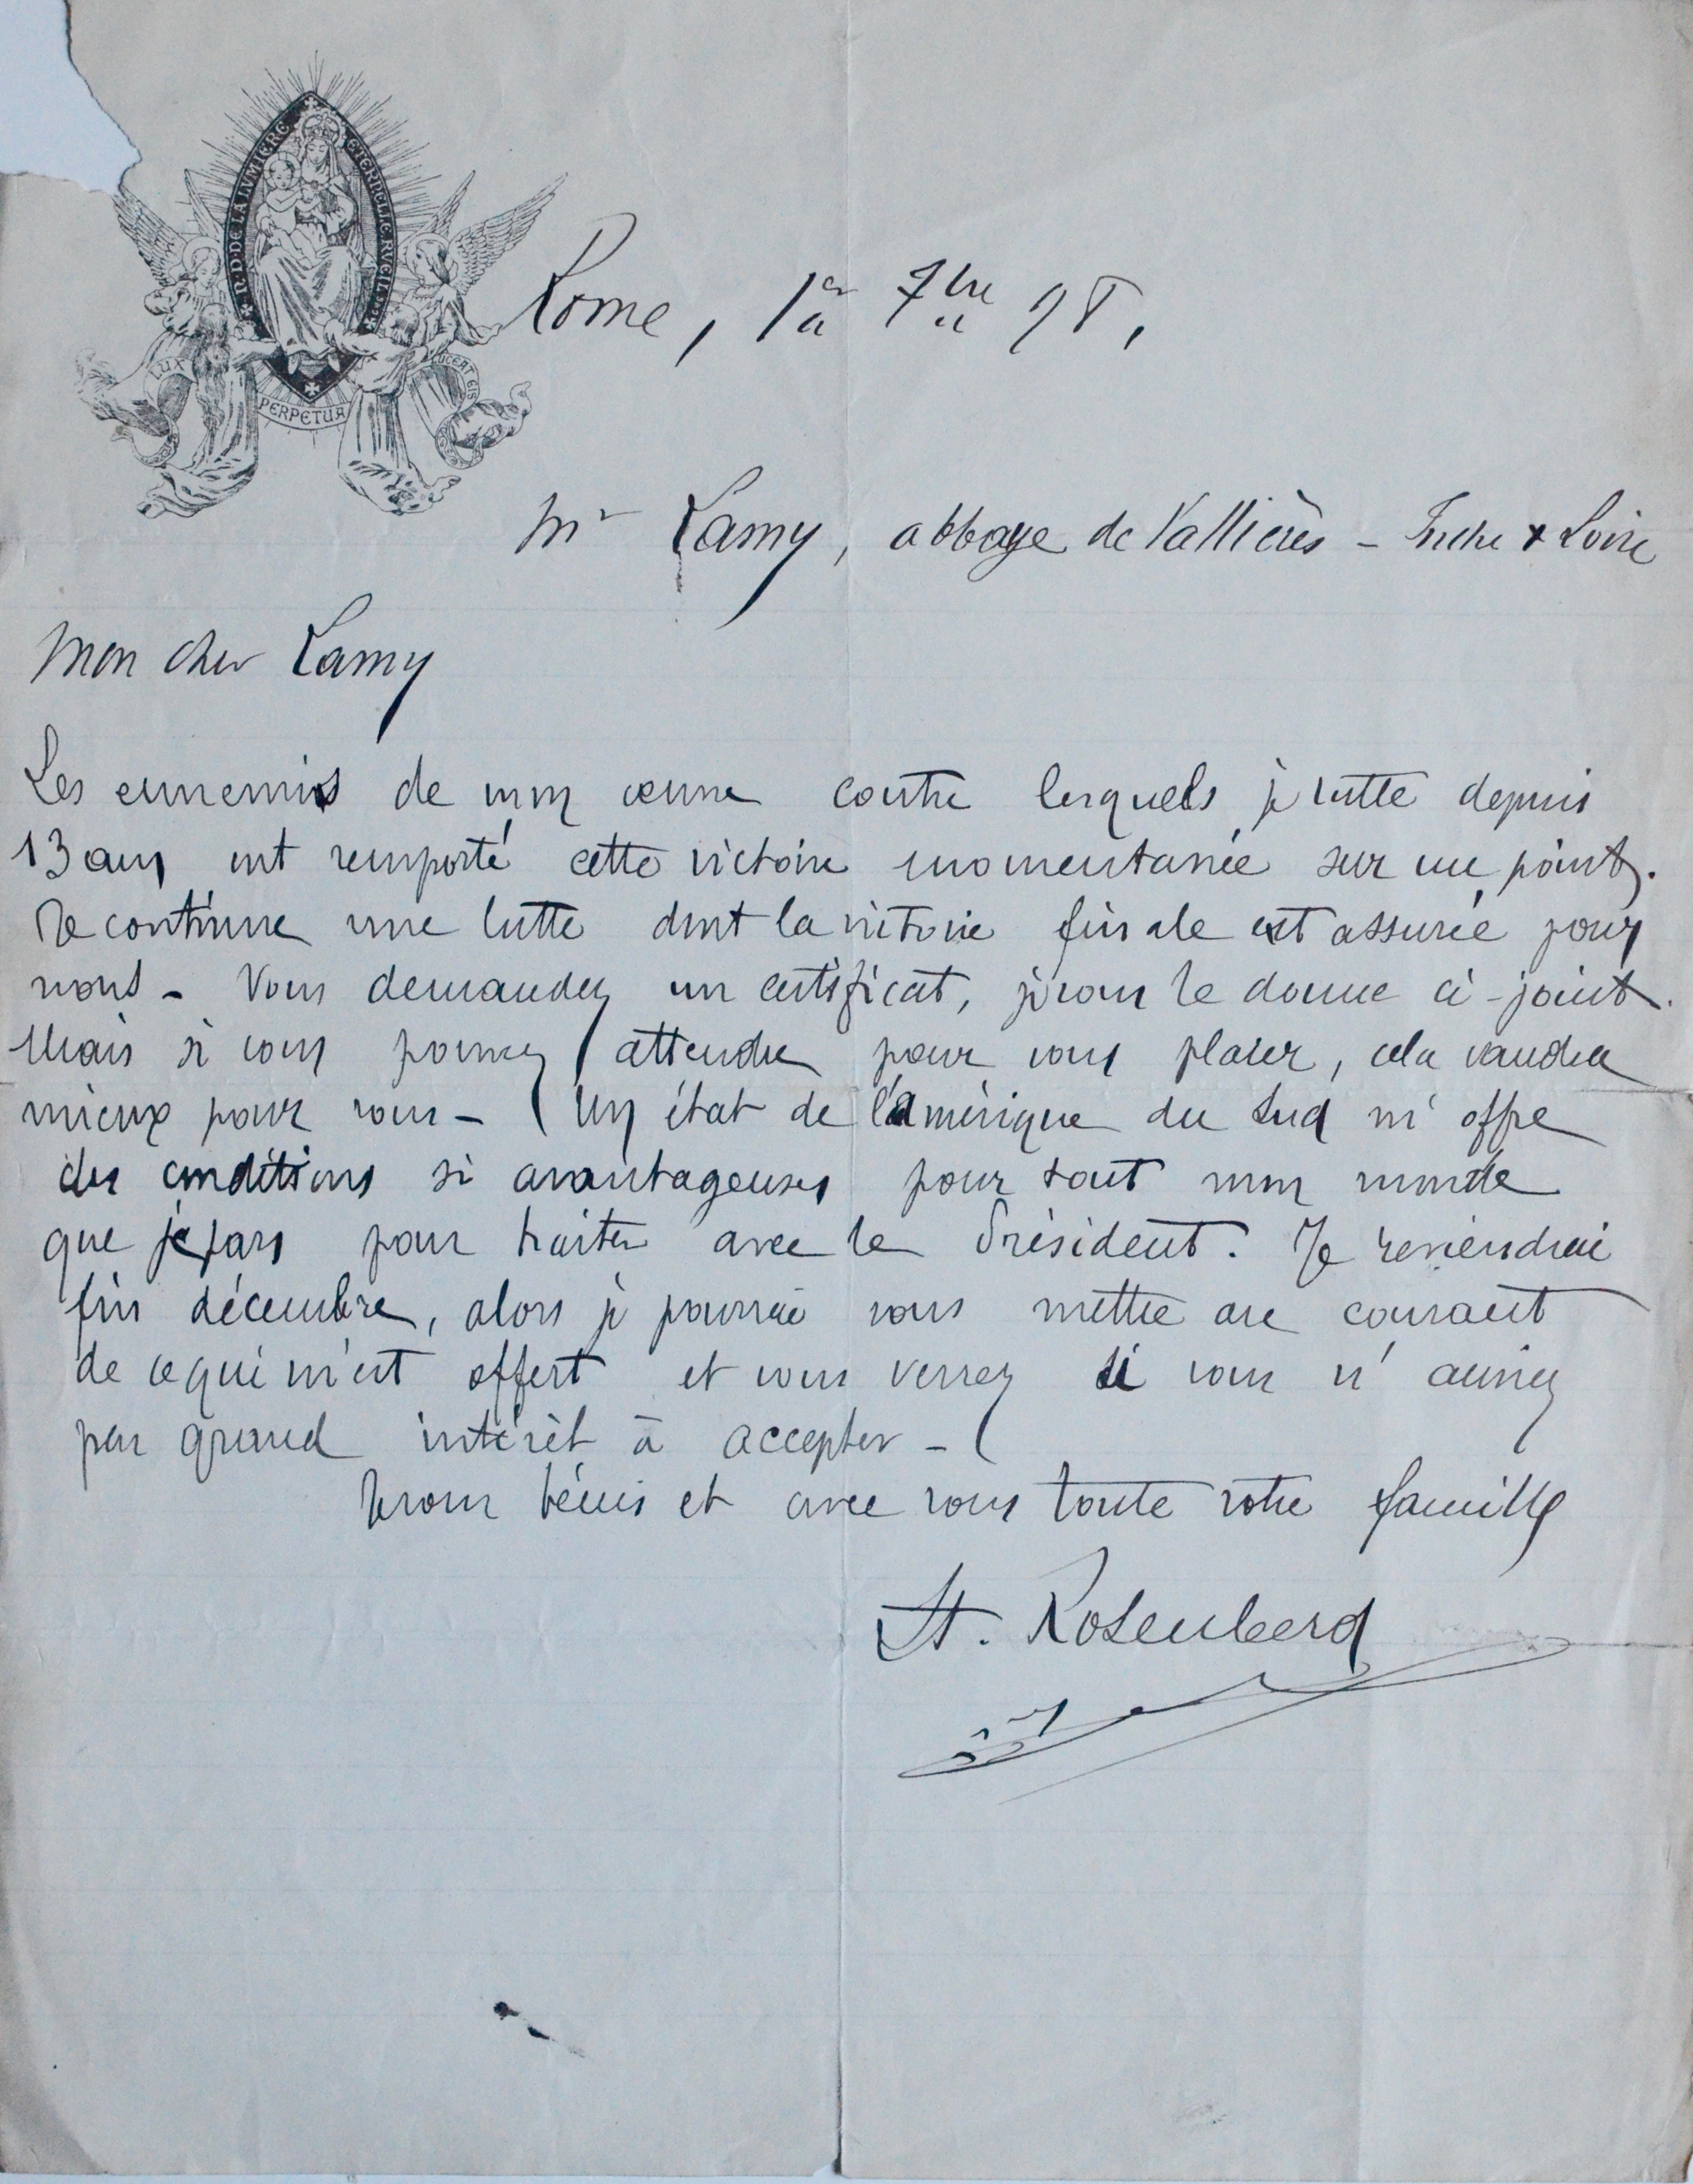 N. D. DE LA LVMIERE ETERNELLE RVEIL
LUX PERPETUA LUCEAT EIS
Rome, 1er 7bre 98,
Mr Lamy, abbaye de Vallières - Indre & Loire
Mon cher Lamy
Les ennemis de mon œuvre contre lesquels je lutte depuis
13 ans ont remporté cette victoire momentanée sur un point.
Je continue une lutte dont la victoire finale est assurée pour
nous - Vous demandez un certificat, je vous le donne ci-joint.
Mais si vous pouvez attendre pour vous placer, cela vaudra
mieux pour vous - Un état de l'amérique du Sud m'offre
des conditions si avantageuses pour tout mon monde
que je pars pour traiter avec le Président. Je reviendrai
fin décembre, alors je pourrai vous mettre au courant
de ce qui m'est offert et vous verrez si vous n'auriez
pas grand intérêt à accepter -
Je vous bénis et avec vous toute votre famille
Rosenberg